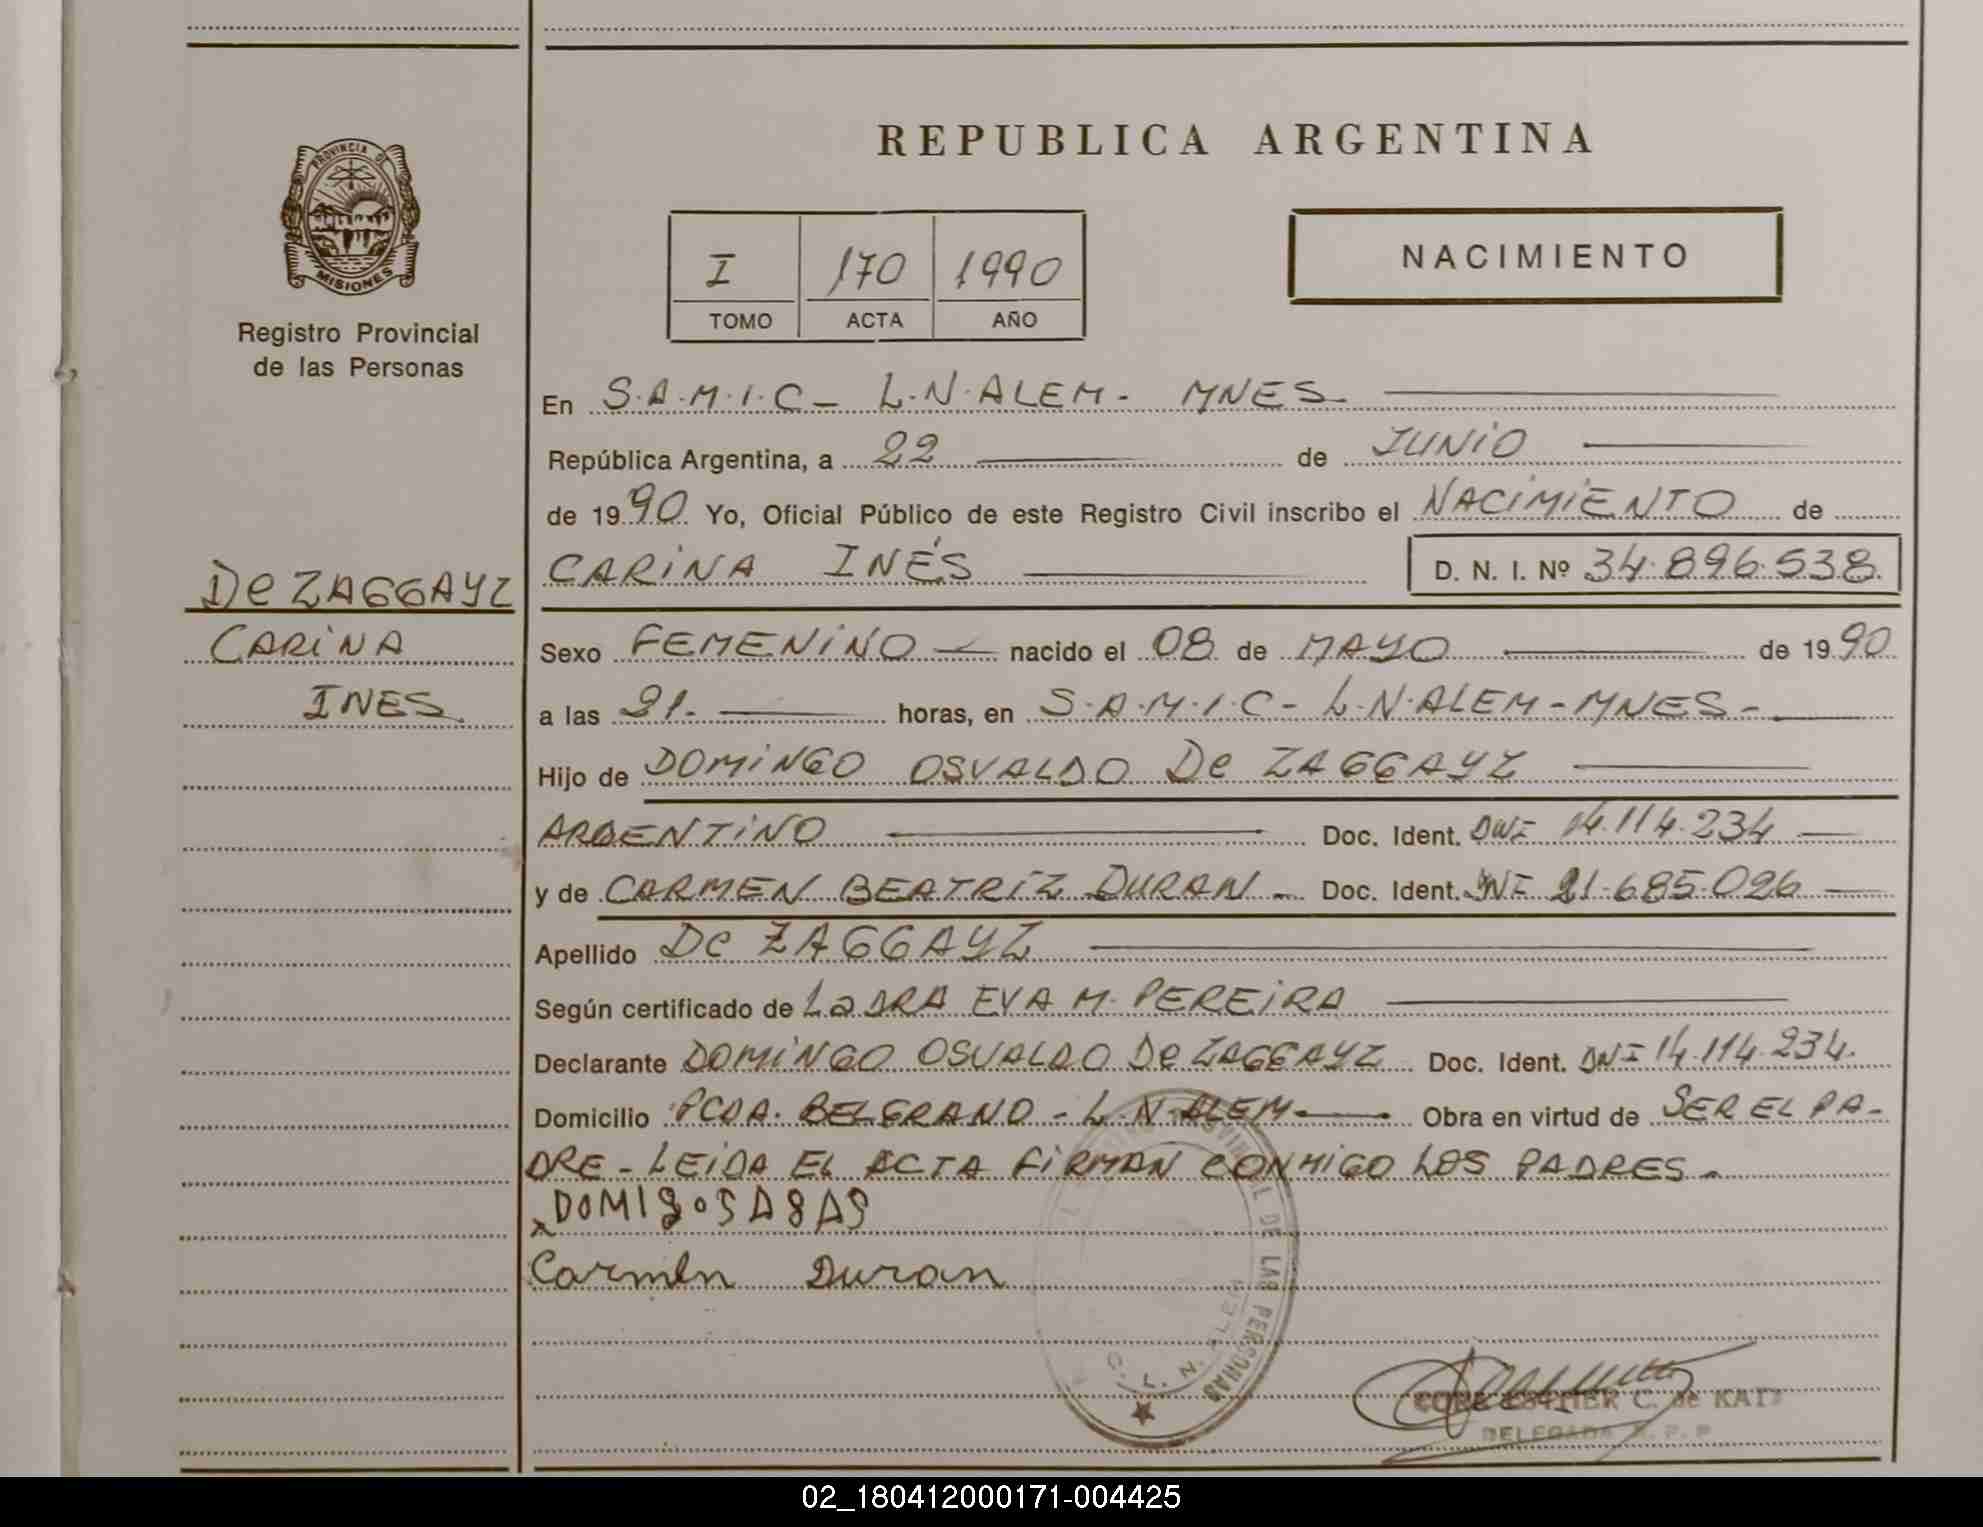 REPUBLICA ARGENTINA
PROVINCIA DE
MISIONES
Registro Provincial
de las Personas
I 170 1990
TOMO ACTA AÑO
NACIMIENTO
En S.A.M.I.C - L.N.ALEM - MNES.
República Argentina, a 22 de JUNIO
de 1990. Yo, Oficial Público de este Registro Civil inscribo el NACIMIENTO de
CARINA INÉS D. N. I. Nº 34.896.538
De ZAGGAYZ
CARINA
INES
Sexo FEMENINO nacido el 08 de MAYO de 1990
a las 21. horas, en S.A.M.I.C - L.N.ALEM - MNES -
Hijo de DOMINGO OSVALDO De ZAGGAYZ
ARGENTINO Doc. Ident. DNI 14.114.234
y de CARMEN BEATRIZ DURAN - Doc. Ident. DNI 21.685.026
Apellido De ZAGGAYZ
Según certificado de La DRA EVA M. PEREIRA
Declarante DOMINGO OSVALDO De ZAGGAYZ Doc. Ident. DNI 14.114.234.
Domicilio PCDA. BELGRANO - L.N.ALEM Obra en virtud de SER EL PA-
DRE - LEIDA EL ACTA FIRMAN CONMIGO LOS PADRES -
Carmen Duran
DE LAS PERSONAS
C. de KATZ
DELEGADA R. P. P
02_180412000171-004425